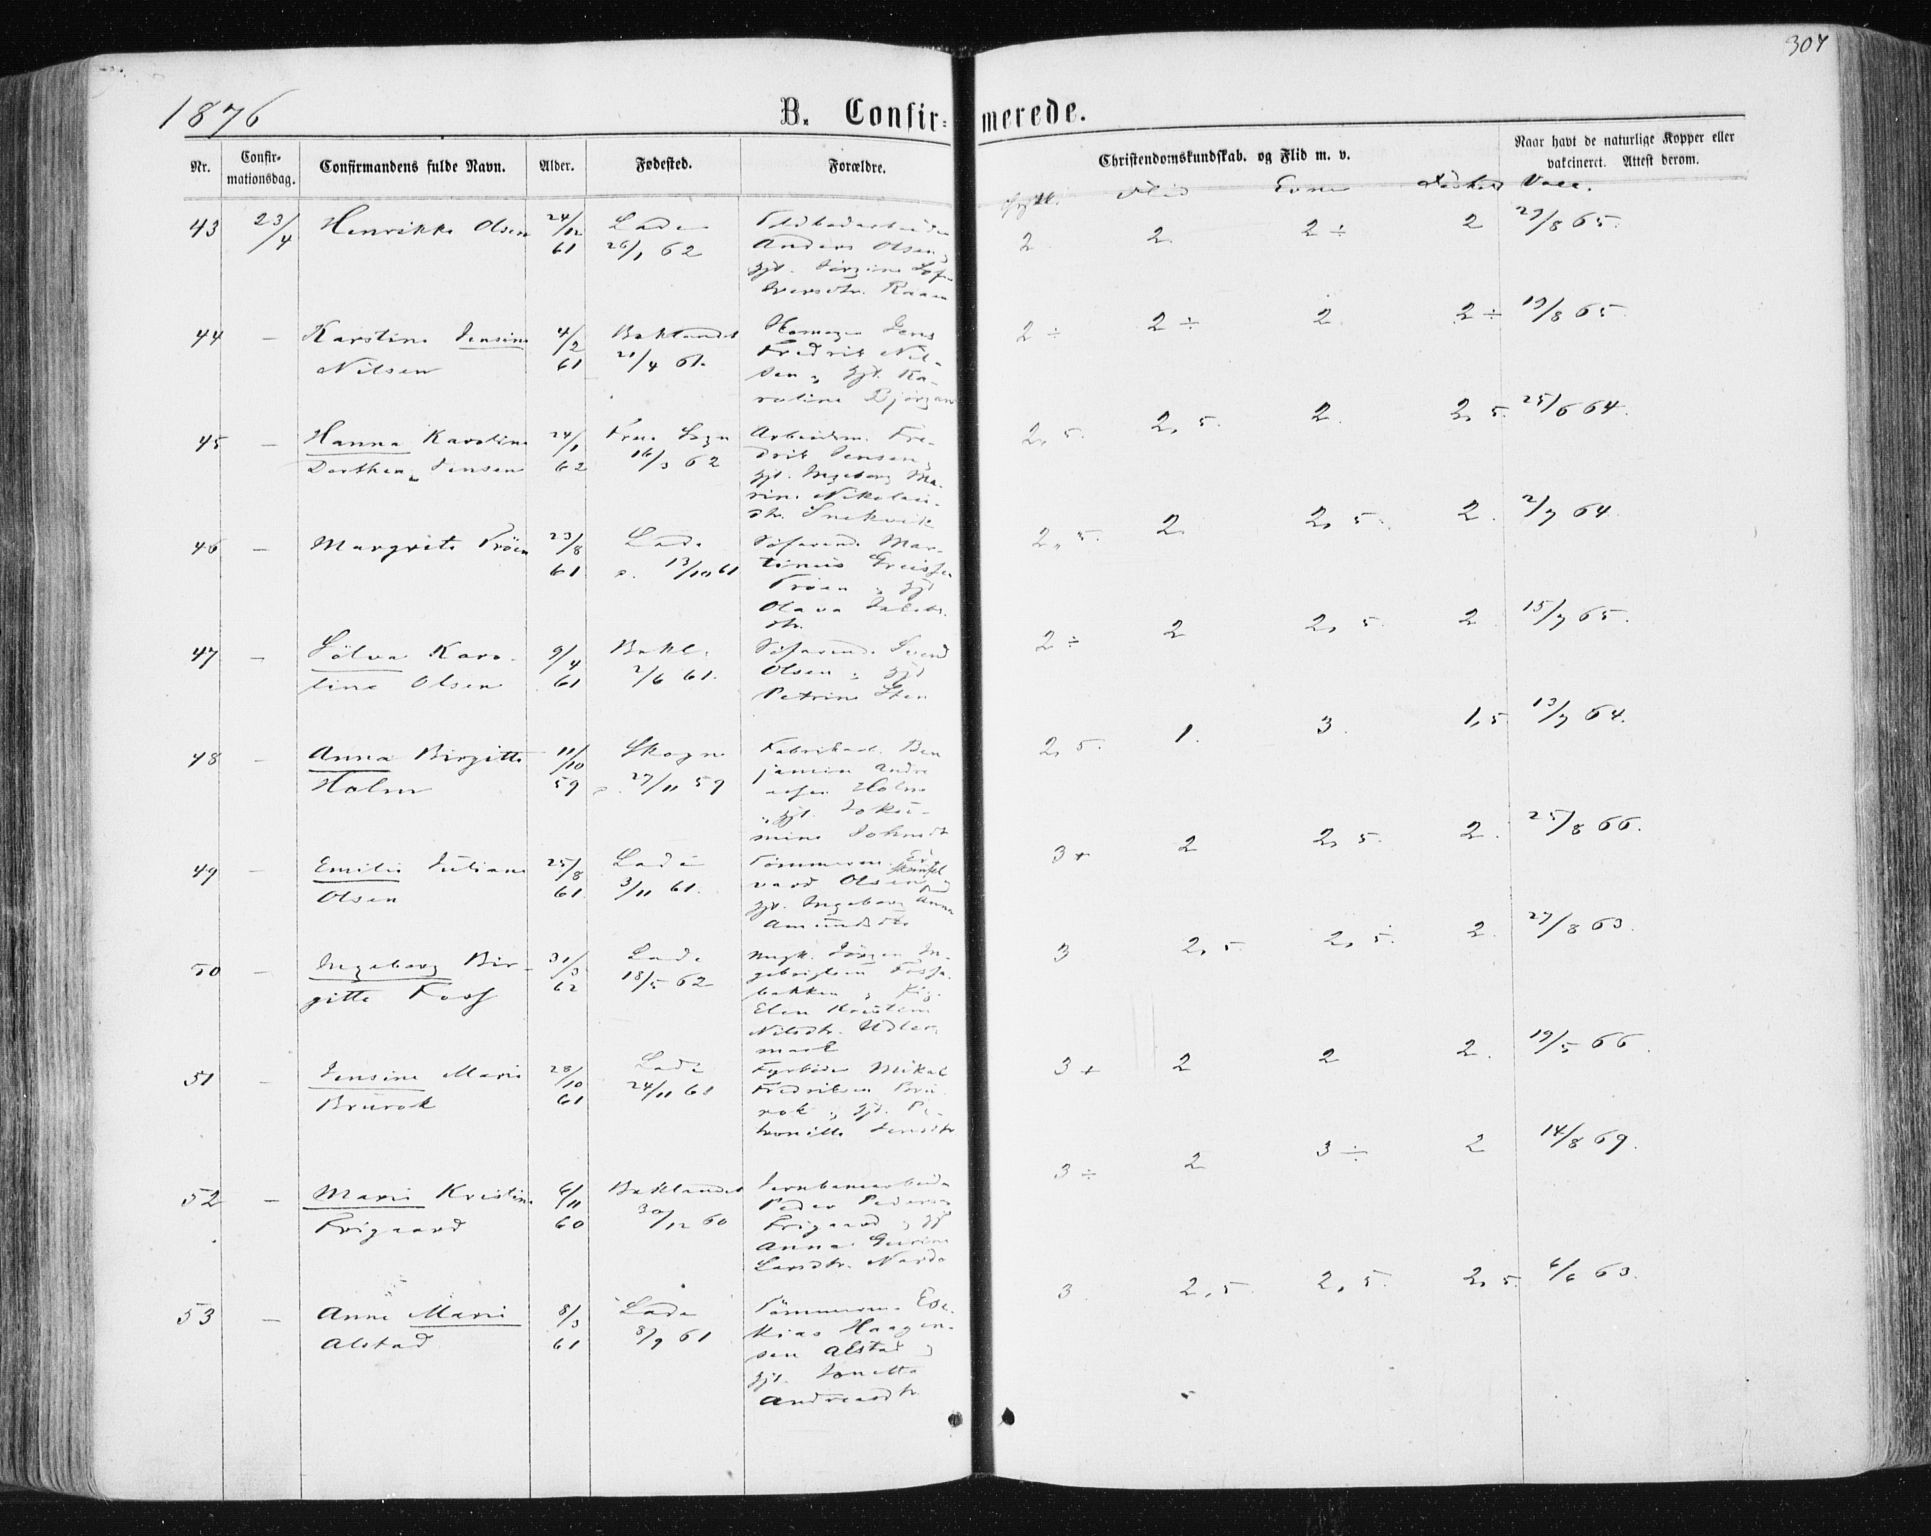 307
1876
B. Confir-
merede.
Nr.
Confir-
mationsdag.
Confirmandens fulde Navn.
Alder.
Fødested.
Forældre.
Christendomskundskab. og Flid m. v.
Naar havt de naturlige Kopper eller
vakcineret. Attest derom.
Flid Evne Vacc.
43 23/4 Henrikke Olsen 24/12 61 Lade 26/1 62
Anders Olsen
gft.
2 2 2 ÷ 2 29/8 65.
44 — Karstine Jensine
Nilsen 4/2 61 Baklandet 21/4 61.
Fredrik Nil-
sen og gft. Ka-
roline Bjørgan
2 ÷ 2 ÷ 2 2 ÷ 19/8 65
45 — Hanna Karoline
Dorthea Jensen 24/1 62 Frue Sogn 16/3 62
Arbeidsm. Fre-
drik Jensen,
gft. Ingeborg Ma-
rie Nikolai-
dtr. Snekvik
2,5. 2,5. 2. 2,5. 25/6 64.
46 — Margrete Trøen 23/8 61 Lade 13/10 61
Søfarende Mar-
tinus
Trøen og gft
Olava
dtr.
2,5. 2 2,5. 2. 2/7 64.
47 — Sølva Karo-
line Olsen 9/4 61 Bakl. 2/6 61.
Søfarende Svend
Olsen og gft
Petrine Sten
2 ÷ 2 2,5. 2 15/7 65.
48 — Anna Birgitte
Holm 11/10 59 Skogn 27/11 59
Fabrikarb. Ben
jamin Andre
asen Holm
og gft.
2,5. 1. 3. 1,5 13/7 64.
49 — Emilie Juliane
Olsen 25/8 61 Lade 3/11 61.
Tømmerm. Ed-
vard Olsen
gft. Ingeborg Anna
Amundsdtr
3+ 2 2,5. 2. 25/8 66.
50 — Ingeborg Bir-
gitte Foss 31/3 62 Lade 18/5 62
Jørgen In-
gebrigtsen
bakken og
Elen
Nilsdtr.
mark
3 2,5 2,5. 2. 27/8 63.
51 — Jensine Marie
Brurok 28/10 61 Lade 24/11 61
Fyrbøder Mikal
Fredriksen Bru
rok og gft. Pe-
tronille Jensdtr
3+ 2 2 2. 19/5 66.
52 — Marie Kristine
Frigaard 6/11 60 Baklandet 30/12 60
Jernbanearbeider
Peder Pedersen
Frigaard og gft
Anna Gurine
Larsdtr.
3 ÷ 2 3 ÷ 2 14/8 69.
53 — Anne Marie
Alstad 8/3 61 Lade 8/9 61
Tømmerm. Ese-
kias Haagen-
sen Alstad og
gft. Jonetta
Andreasdtr
3. 2,5. 2,5. 2,5. 6/6 63.